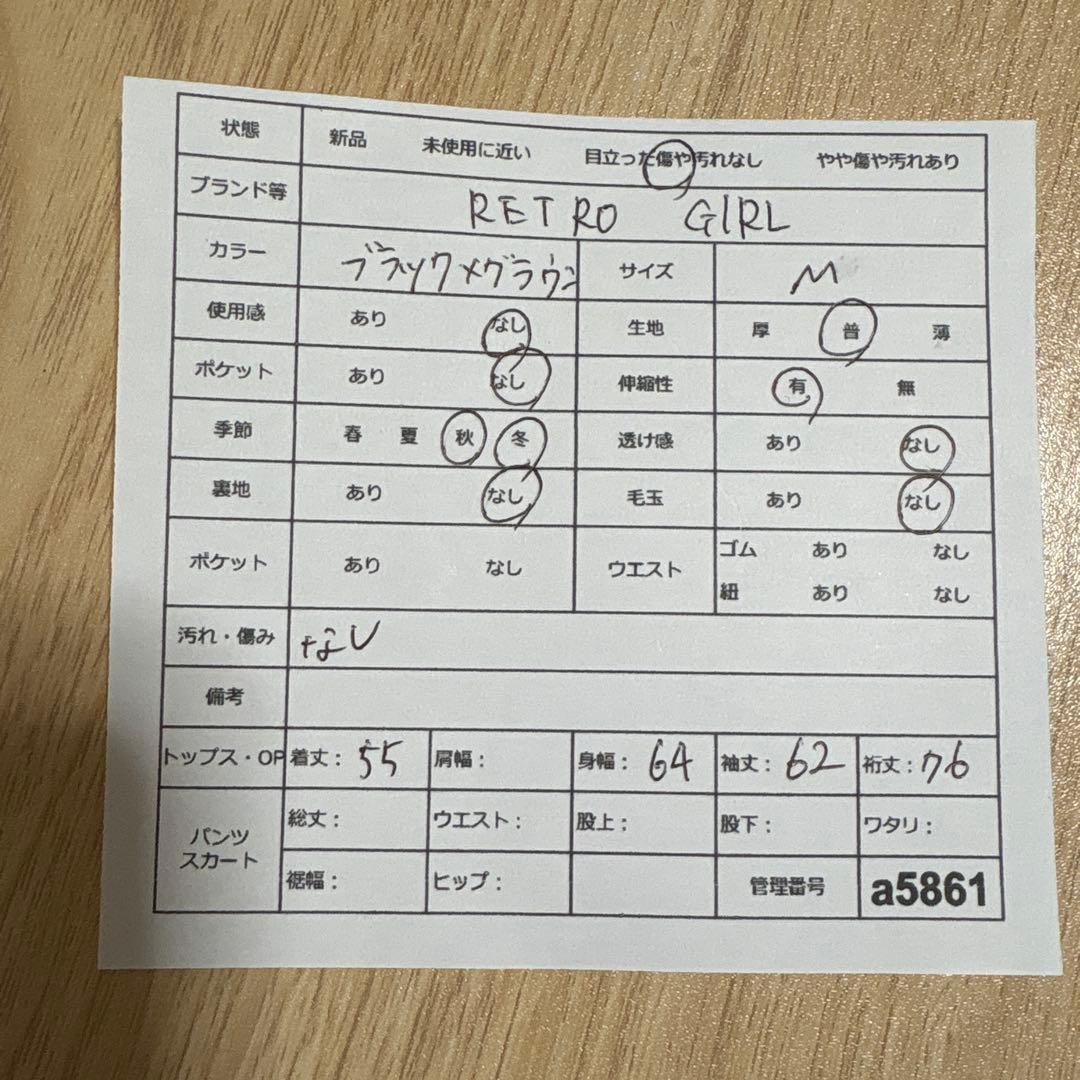 状態 新品 未使用に近い 目立った傷や汚れなし やや傷や汚れあり
ブランド等 RETRO GIRL
カラー ブラック×グラウン サイズ M
使用感 あり なし 生地 厚 普 薄
ポケット あり なし 伸縮性 有 無
季節 春 夏 秋 冬 透け感 あり なし
裏地 あり なし 毛玉 あり なし
ポケット あり なし ウエスト ゴム あり なし
紐 あり なし
汚れ・傷み なし
備考
トップス・OP 着丈: 55 肩幅: 身幅: 64 袖丈: 62 裄丈: 76
パンツ スカート 総丈: ウエスト: 股上; 股下: ワタリ:
裾幅: ヒップ: 管理番号 a5861